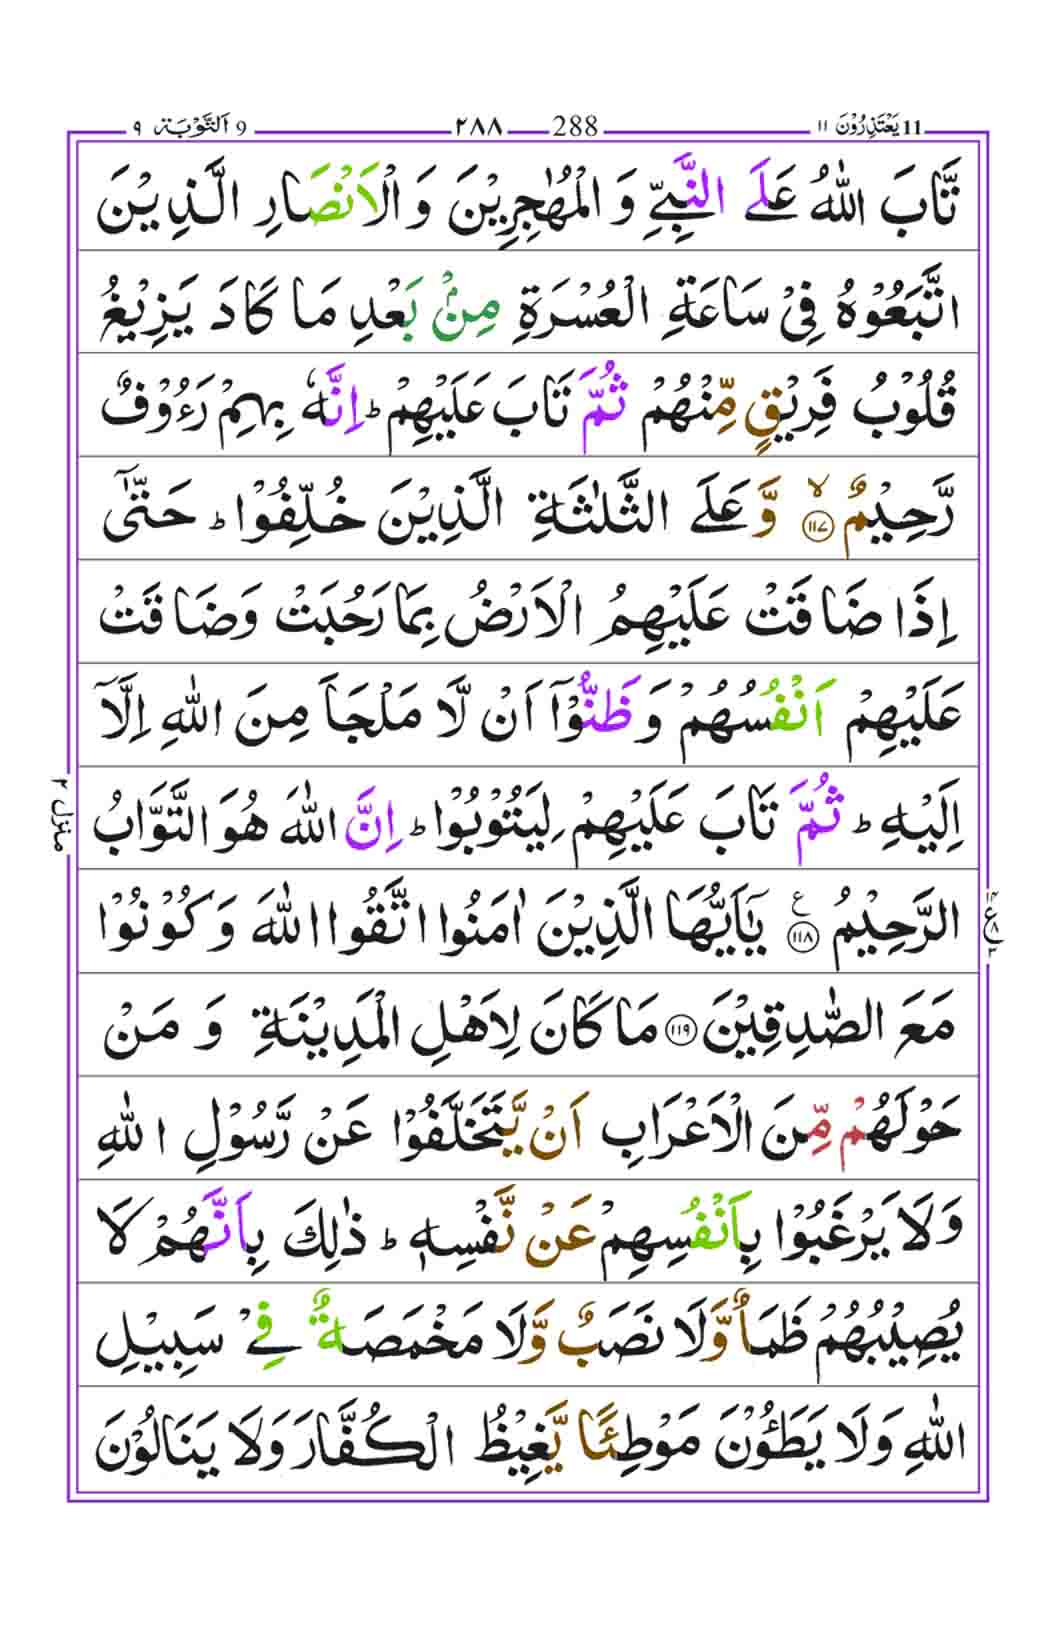 11 يَعْتَذِرُوْنَ ١١ 288 ٢٨٨ 9 اَلتَّوْبَة ٩
تَّابَ اللّٰهُ عَلَى النَّبِيِّ وَ الْمُهٰجِرِيْنَ وَ الْاَنْصَارِ الَّذِيْنَ
اتَّبَعُوْهُ فِيْ سَاعَةِ الْعُسْرَةِ مِنْۢ بَعْدِ مَا كَادَ يَزِيْغُ
قُلُوْبُ فَرِيْقٍ مِّنْهُمْ ثُمَّ تَابَ عَلَيْهِمْ ؕ اِنَّهٗ بِهِمْ رَءُوْفٌ
رَّحِيْمٌ ۙ ١١٧ وَّ عَلَى الثَّلٰثَةِ الَّذِيْنَ خُلِّفُوْا ؕ حَتّٰۤى
اِذَا ضَاقَتْ عَلَيْهِمُ الْاَرْضُ بِمَا رَحُبَتْ وَضَاقَتْ
عَلَيْهِمْ اَنْفُسُهُمْ وَ ظَنُّوْۤا اَنْ لَّا مَلْجَاَ مِنَ اللّٰهِ اِلَّاۤ
اِلَيْهِ ؕ ثُمَّ تَابَ عَلَيْهِمْ لِيَتُوْبُوْا ؕ اِنَّ اللّٰهَ هُوَ التَّوَّابُ
الرَّحِيْمُ ١١٨ ع يٰۤاَيُّهَا الَّذِيْنَ اٰمَنُوا اتَّقُوا اللّٰهَ وَ كُوْنُوْا
مَعَ الصّٰدِقِيْنَ ١١٩ مَا كَانَ لِاَهْلِ الْمَدِيْنَةِ وَ مَنْ
حَوْلَهُمْ مِّنَ الْاَعْرَابِ اَنْ يَّتَخَلَّفُوْا عَنْ رَّسُوْلِ اللّٰهِ
وَلَا يَرْغَبُوْا بِاَنْفُسِهِمْ عَنْ نَّفْسِهٖ ؕ ذٰلِكَ بِاَنَّهُمْ لَا
يُصِيْبُهُمْ ظَمَاٌ وَّلَا نَصَبٌ وَّلَا مَخْمَصَةٌ فِيْ سَبِيْلِ
اللّٰهِ وَلَا يَطَـُٔوْنَ مَوْطِئًا يَّغِيْظُ الْكُفَّارَ وَلَا يَنَالُوْنَ
منزل ٢
ع